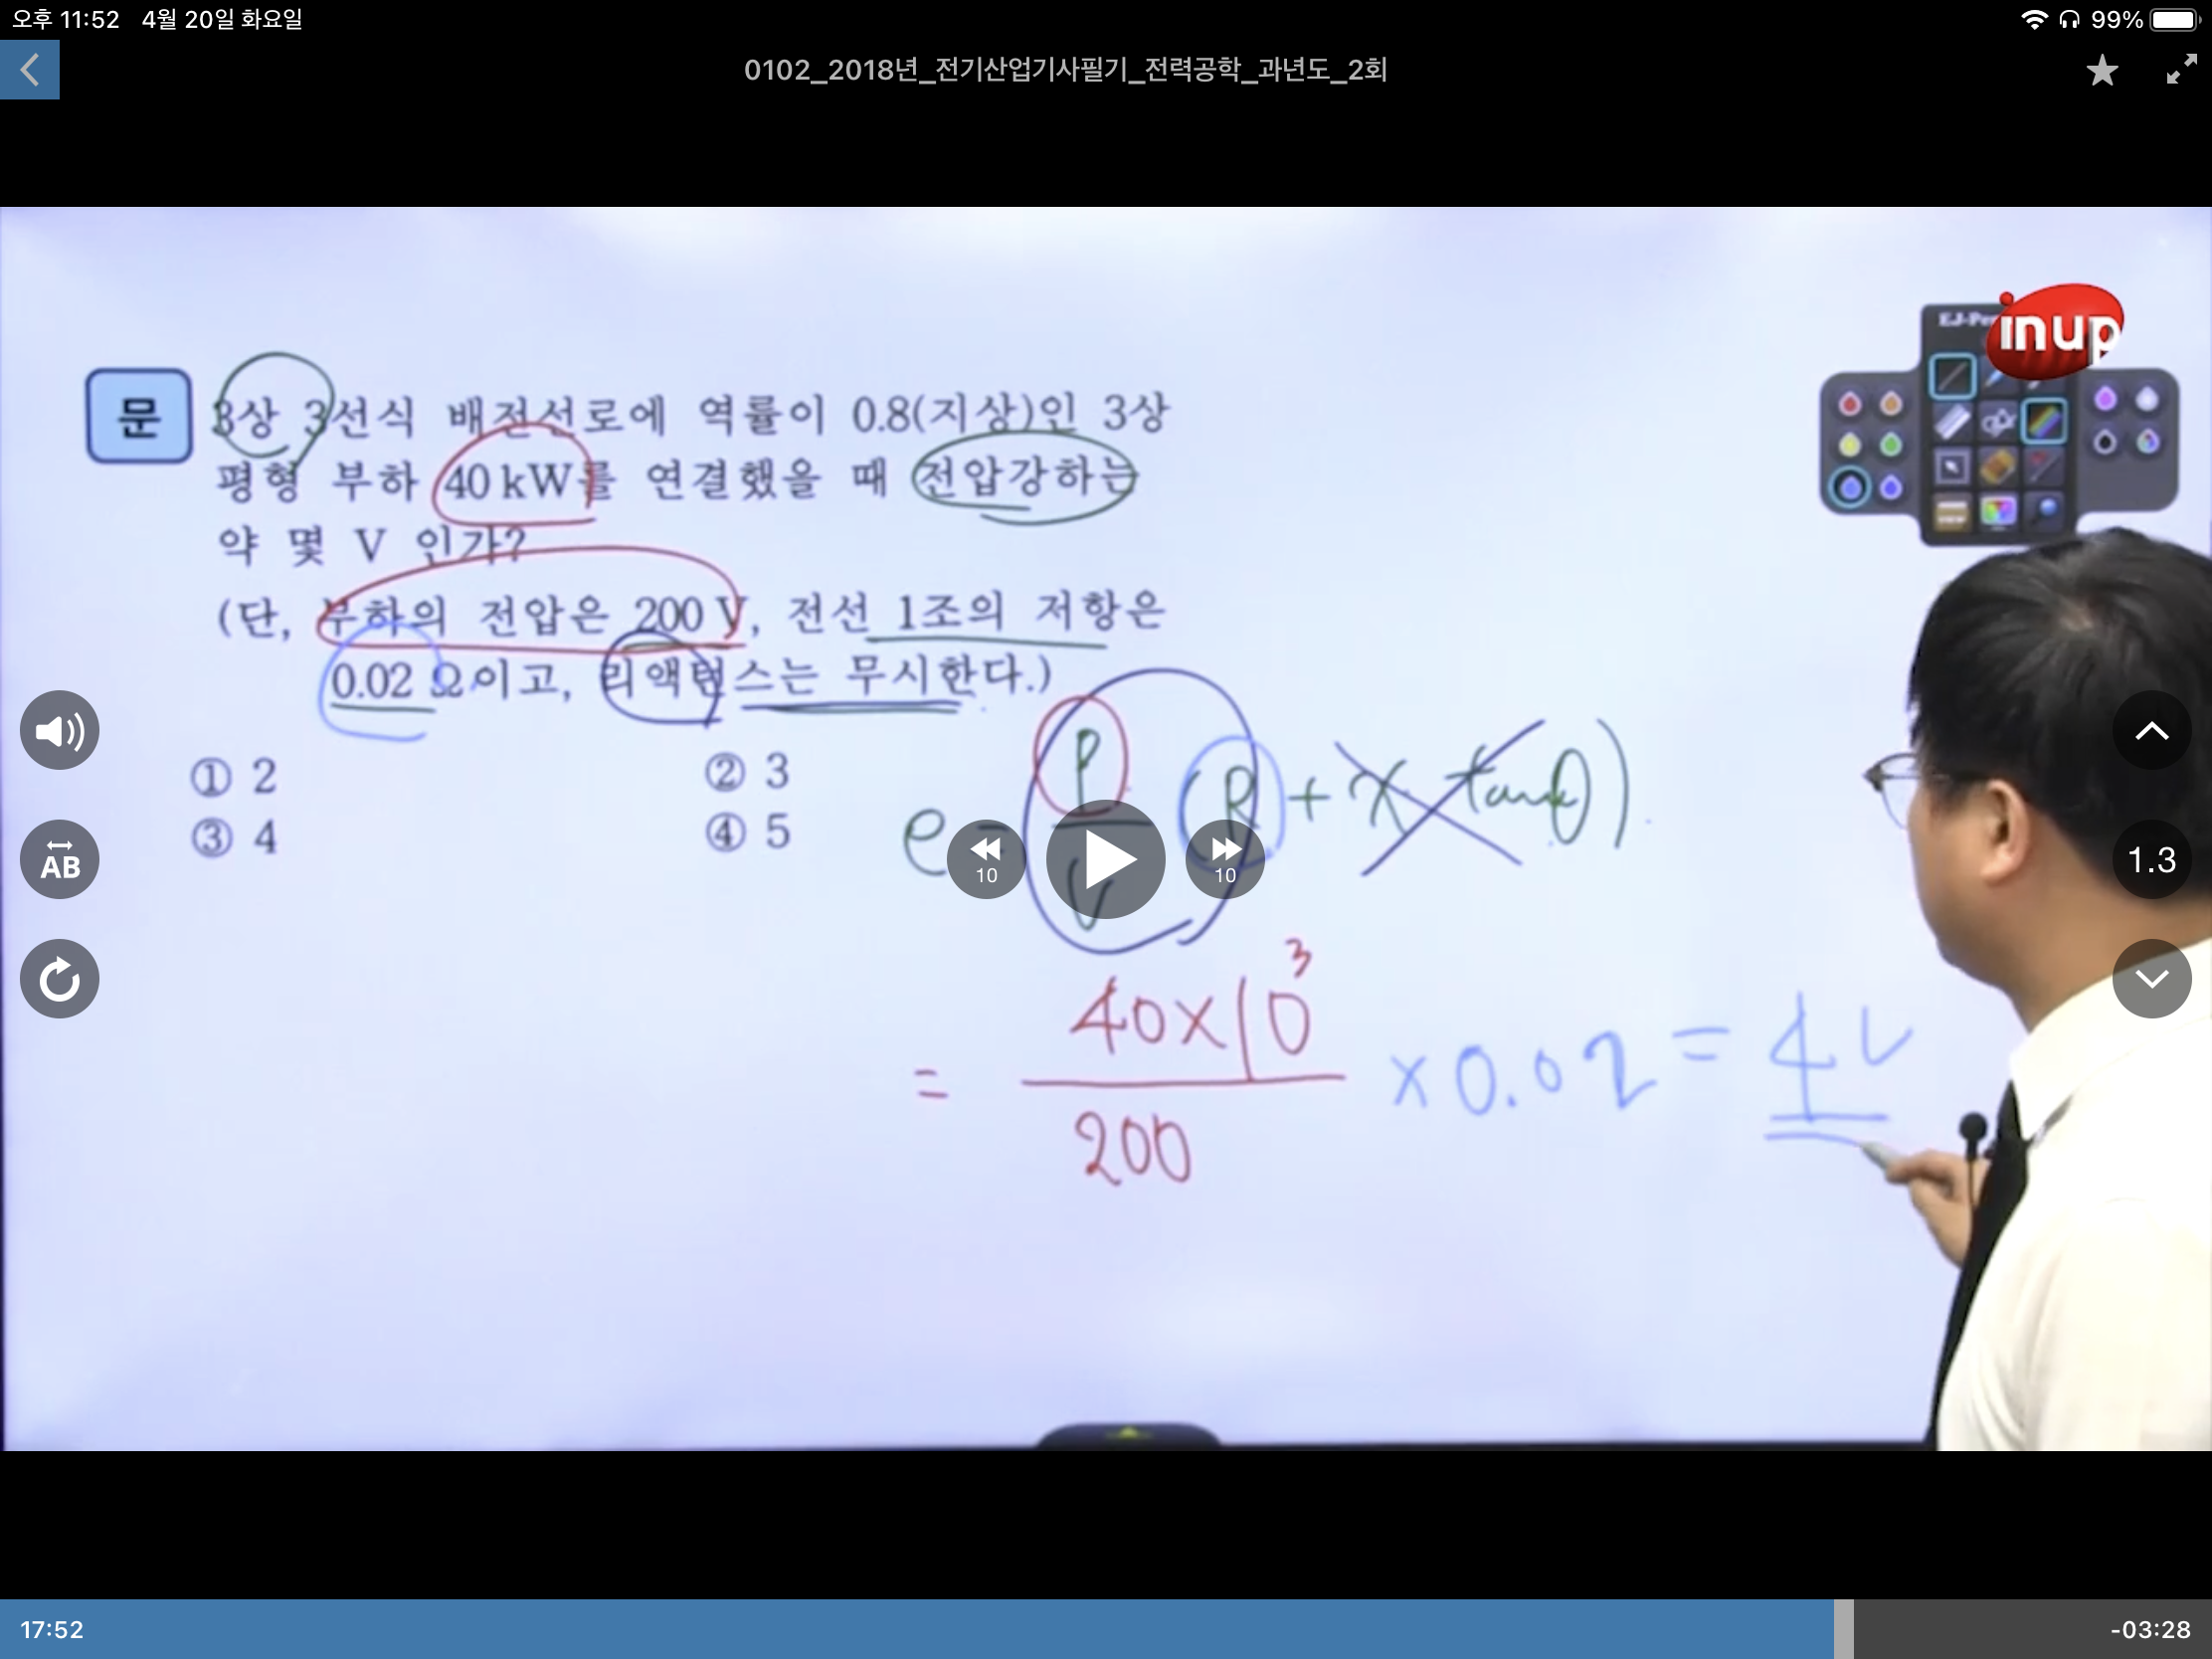 오후 11:52 4월 20일 화요일 99%
0102_2018년_전기산업기사필기_전력공학_과년도_2회
inup
EJ-Pen
문 3상 3선식 배전선로에 역률이 0.8(지상)인 3상
평형 부하 40 kW를 연결했을 때 전압강하는
약 몇 V 인가?
(단, 부하의 전압은 200 V, 전선 1조의 저항은
0.02 Ω이고, 리액턴스는 무시한다.)
① 2 ② 3
③ 4 ④ 5
e = P/V (R + X tanθ).
= 40×10³/200 ×0.02 = 4V
AB
10
10
1.3
17:52 -03:28